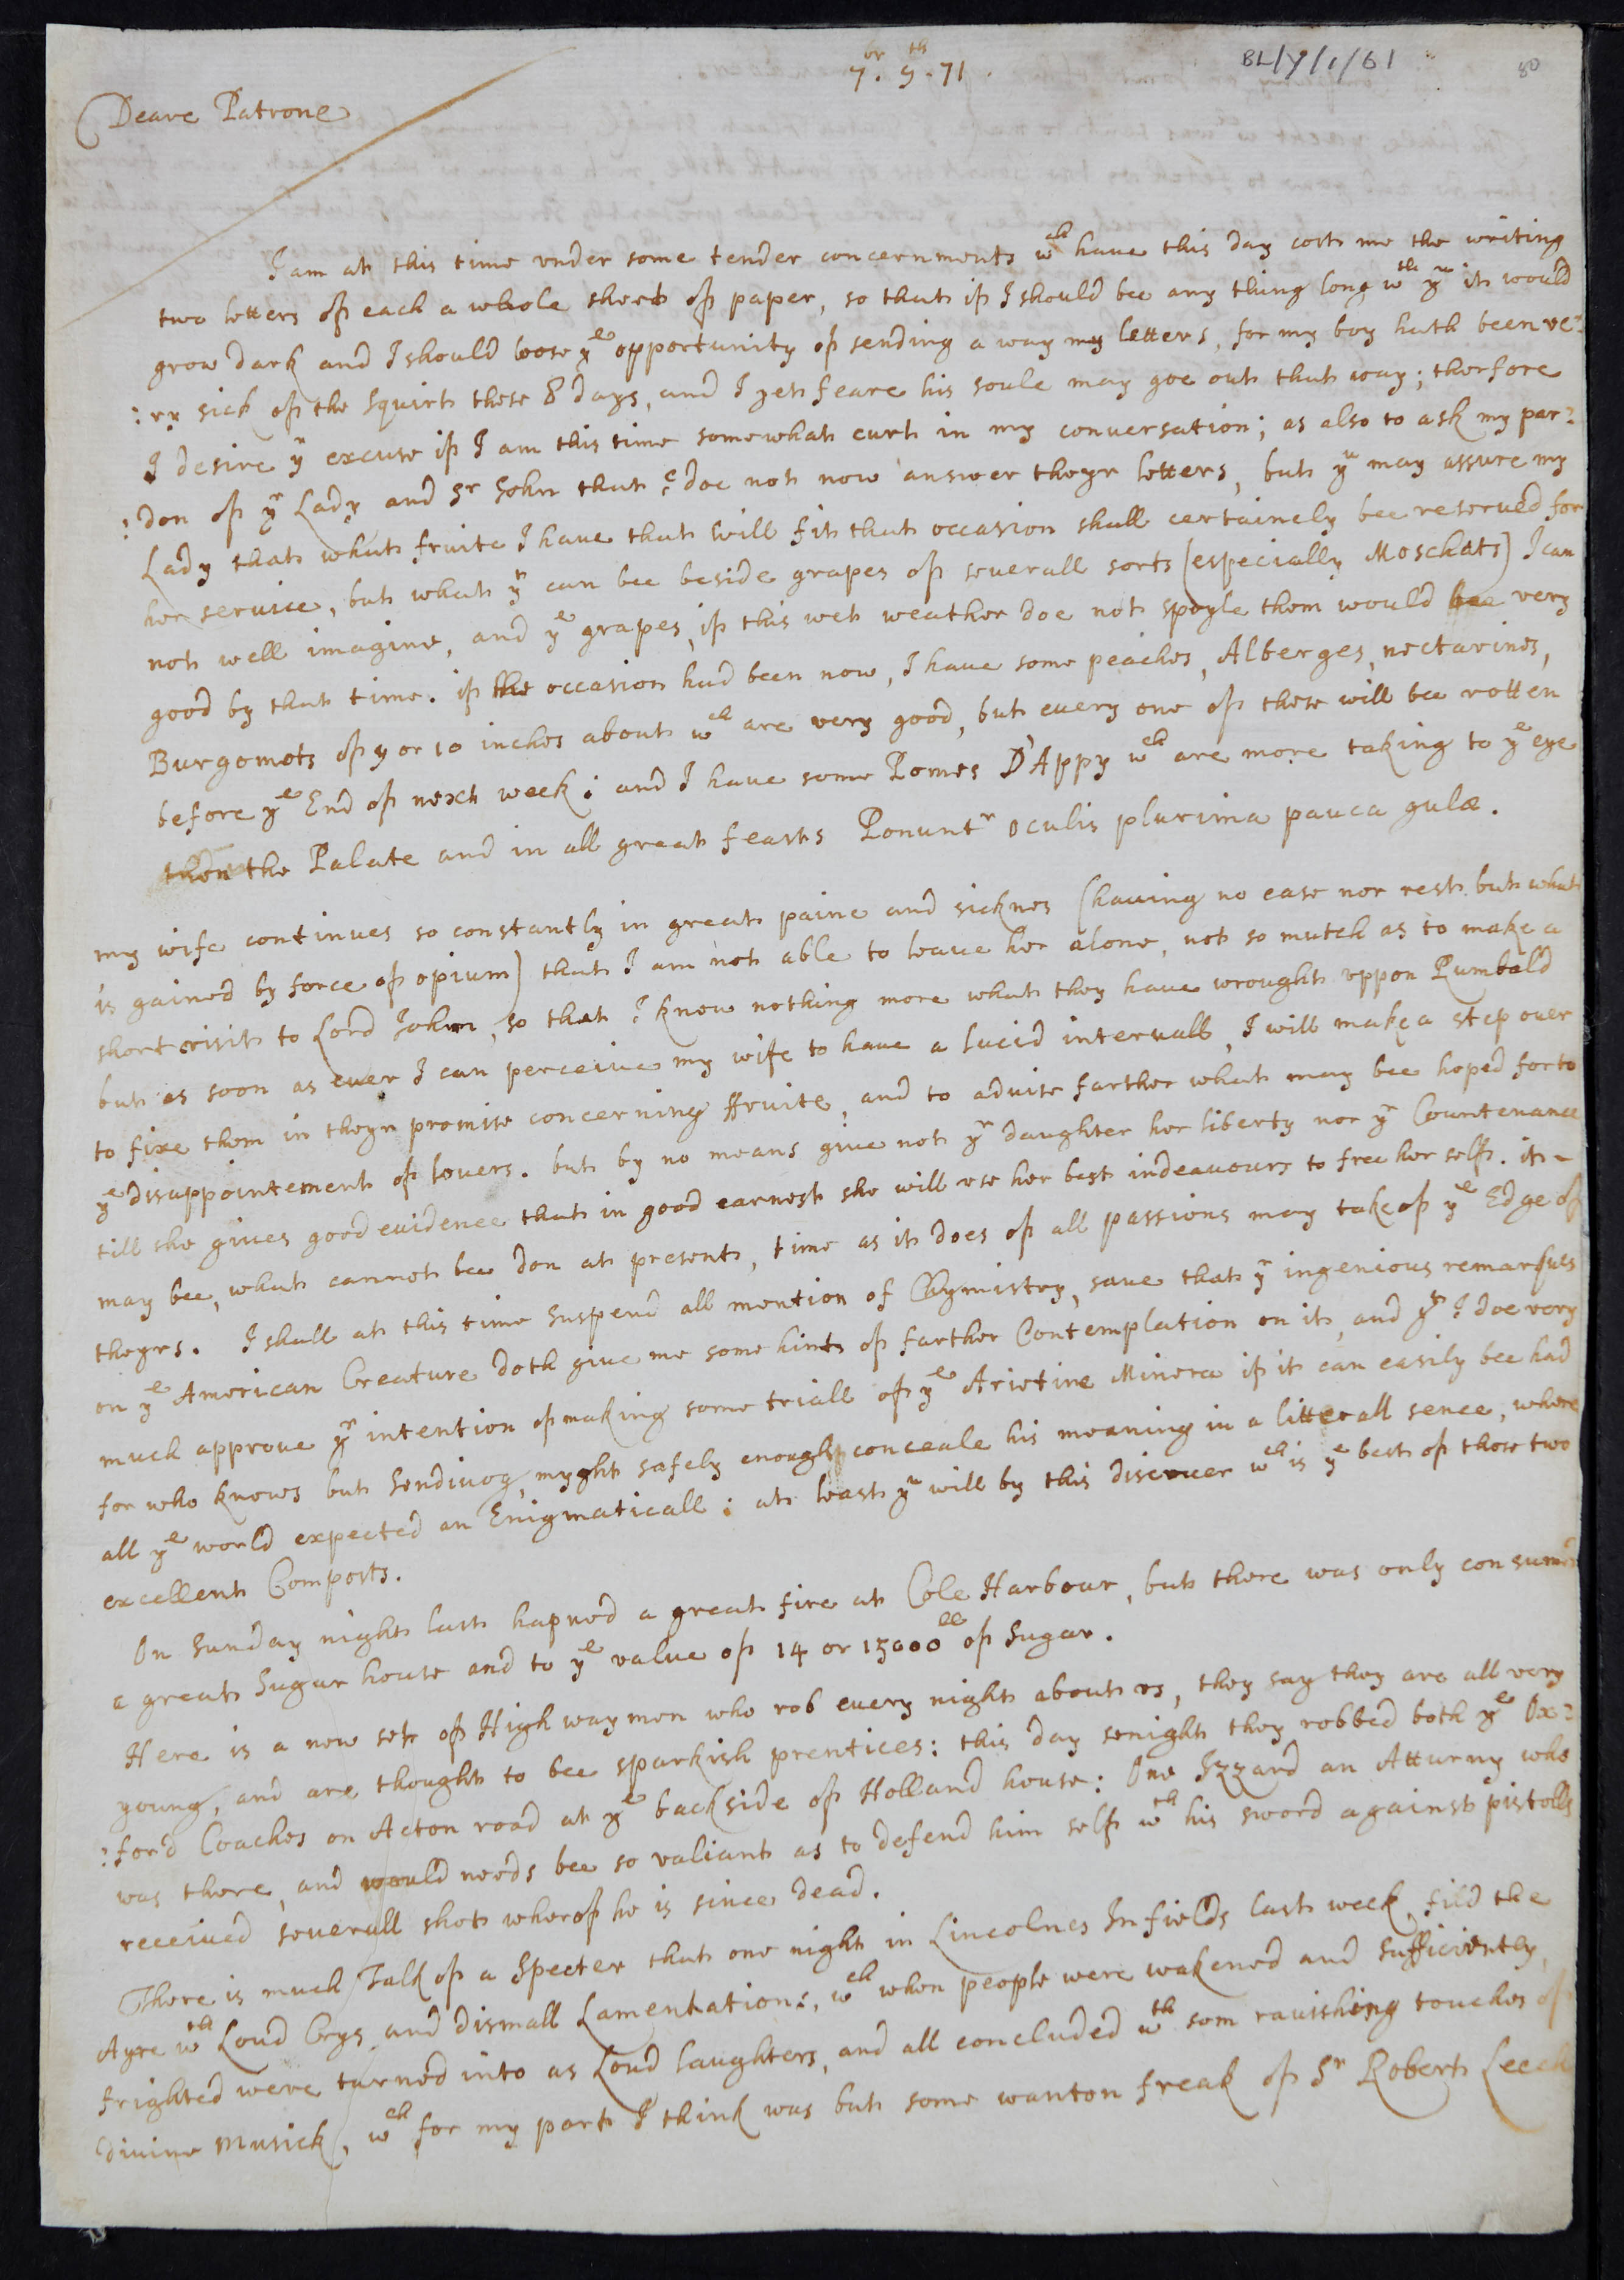 7.br 9.th 71.
BL/Y/1/61
80
Deare Patrone
I am at this time vnder some tender concernments wch haue this day cost me the writing
two letters of each a whole sheet of paper, so that if I should bee any thing long wth yu it would
grow dark and I should loose ye opportunity of sending a way my letters, for my boy hath been ve:
:ry sick of the Squirt these 8 days, and I yet feare his soule may goe out that way; therfore
I desire yr excuse if I am this time somewhat curt in my conuersation; as also to ask my par:
:don of yr Lady and Sr John that I doe not now answer theyr letters, but yu may assure my
Lady that what fruite I haue that will fit that occasion shall certainely bee reserued for
her seruice, but what yt can bee beside grapes of seuerall sorts (especially Moschats) I can
not well imagine, and ye grapes, if this wet weather doe not spoyle them would bee very
good by that time. if the occasion had been now, I haue some peaches, Alberges, nectarines,
Burgomots of 9 or 10 inches about wch are very good, but euery one of these will bee rotten
before ye End of next week: and I haue some Pomes D'Appy wch are more taking to ye eye
then the Palate and in all great feasts Ponuntr oculis plurima pauca gulæ.
my wife continues so constantly in great paine and sicknes (hauing no ease nor rest but what
is gained by force of opium) that I am not able to leaue her alone, not so mutch as to make a
short visit to Lord John, so that I know nothing more what they haue wrought vppon Rumbald
but as soon as euer I can perceiue my wife to haue a lucid interuall, I will make a step ouer
to fixe them in theyr promise concerning ffruite, and to aduise farther what may bee hoped for to
ye disappointement of louers. but by no means giue not yr daughter her liberty nor yr Countenance
till she giues good euidence that in good earnest she will vse her best indeauours to free her self. it
may bee, what cannot bee don at present, time as it does of all passions may take of ye Edge of
theyrs. I shall at this time suspend all mention of Chymistry, saue that yr ingenious remarques
on ye American Creature doth giue me some hints of farther Contemplation on it, and yt I doe very
much approue yr intention of making some triall of ye Arietine Minera if it can easily bee had
for who knows but Sendiuog, myght safely enough conceale his meaning in a litterall sence, where
all ye world expected an Enigmaticall: at least yu will by this discouer wch is ye best of those two
excellent Composts.
On Sunday night last hapned a great fire at Cole Harbour, but there was only consumed
a great Sugar house and to ye value of 14 or 15000ll of Sugar.
Here is a new set of High way men who rob euery night about vs, they say they are all very
young, and are thought to bee sparkish prentices: this day senight they robbed both ye Ox:
:ford Coaches on Acton road at ye backside of Holland house: One Izzard an Atturny who
was there, and would needs bee so valiant as to defend him self wth his sword against pistolls
receiued seuerall shots wherof he is since dead.
There is much Talk of a Specter that one night in Lincolnes In fields last week fild the
Ayre wth Loud Crys and dismall Lamentations, wch when people were wakened and sufficiently
frighted were turned into as Loud laughters, and all concluded wth som rauishing touches of
diuine Musick, wch for my part I think was but some wanton freak of Sr Robert Leech